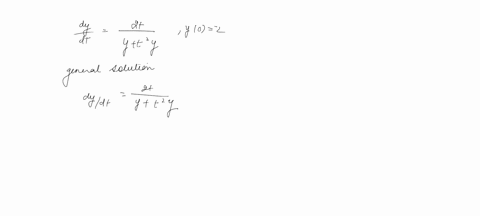 dy/dt = 2t/(y+t²y) , y(0)=2
general solution
dy/dt = 2t/(y+t²y)